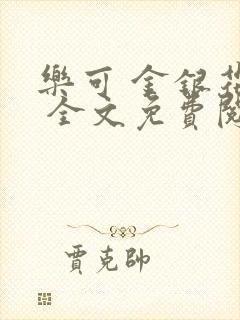 樂可 金銀花
全文免費閱
賈克帥